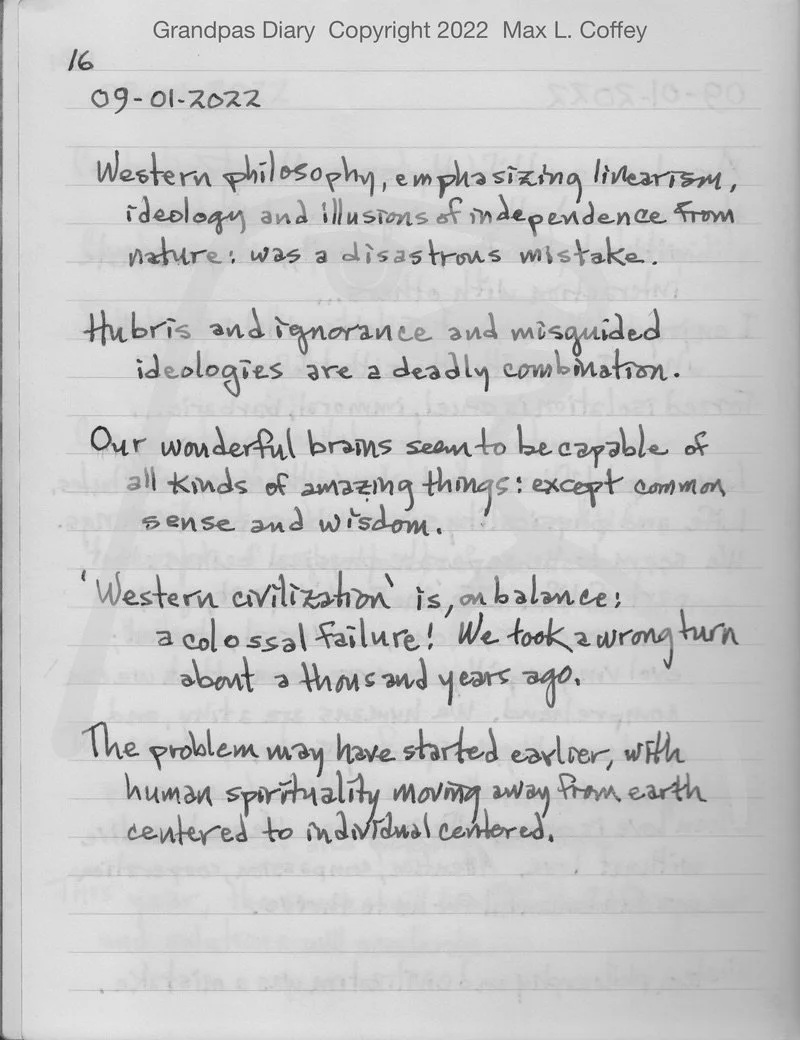 Grandpas Diary Copyright 2022 Max L. Coffey
16
09-01-2022
Western philosophy, emphasizing linearism,
ideology and illusions of independence from
nature: was a disastrous mistake.
Hubris and ignorance and misguided
ideologies are a deadly combination.
Our wonderful brains seem to be capable of
all kinds of amazing things: except common
sense and wisdom.
'Western civilization' is, on balance:
a colossal failure! We took a wrong turn
about a thousand years ago.
The problem may have started earlier, with
human spirituality moving away from earth
centered to individual centered.